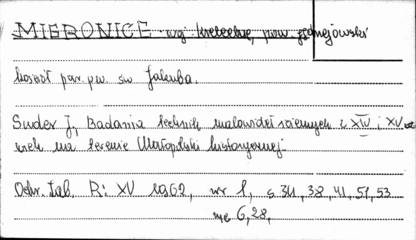 MIERONICE woj. kieleckie, pow. jędrzejowski
kościół par. pw. św. Jakuba.
Suder J, Badania technik malowideł ściennych z XIV i XV
wiek na terenie Małopolski historycznej.
Ochr. Zab. R: XV 1962, nr 1, s. 34, 38, 41, 51, 53
6, 28,